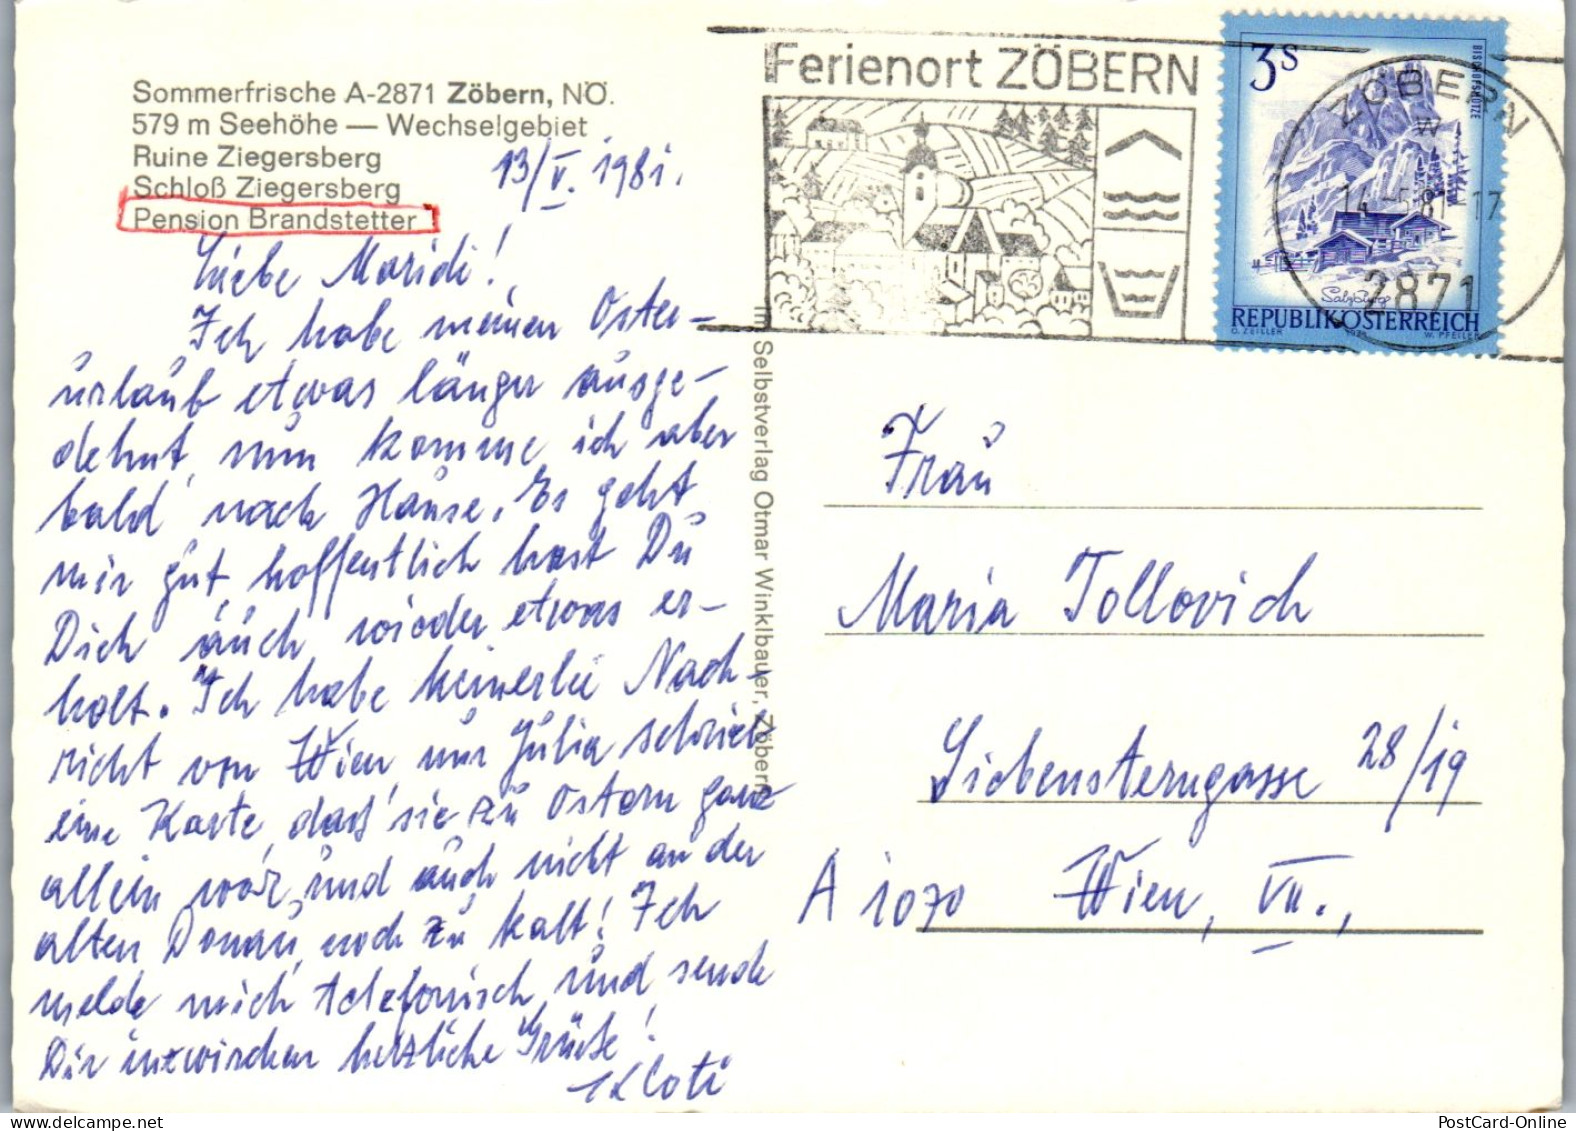 Sommerfrische A-2871 Zöbern, NÖ.
579 m Seehöhe — Wechselgebiet
Ruine Ziegersberg
Schloß Ziegersberg
Pension Brandstetter
13/V. 1981.
Liebe Maridi!
Ich habe meinen Oster-
urlaub etwas länger ausge-
dehnt, nun komme ich aber
bald nach Hause. Es geht
mir gut, hoffentlich hast Du
Dich auch wieder etwas er-
holt. Ich habe keinerlei Nach-
richt von Wien, nur Julia schrieb
eine Karte, daß sie zu Ostern ganz
allein war und auch nicht an der
alten Donau, noch zu kalt! Ich
melde mich telefonisch und sende
Dir inzwischen herzliche Grüße!
Loti
Im Selbstverlag Otmar Winklbauer, Zöbern
Ferienort ZÖBERN
3 S
BISCHOFSMÜTZE
Salzburg
REPUBLIK ÖSTERREICH
O. ZEILLER
W. PFEILER
ZÖBERN
W
14.-5.81-17
2871
Frau
Maria Tollovich
Siebensterngasse 28/19
A 1070 Wien, VII.,
PostCard-Online